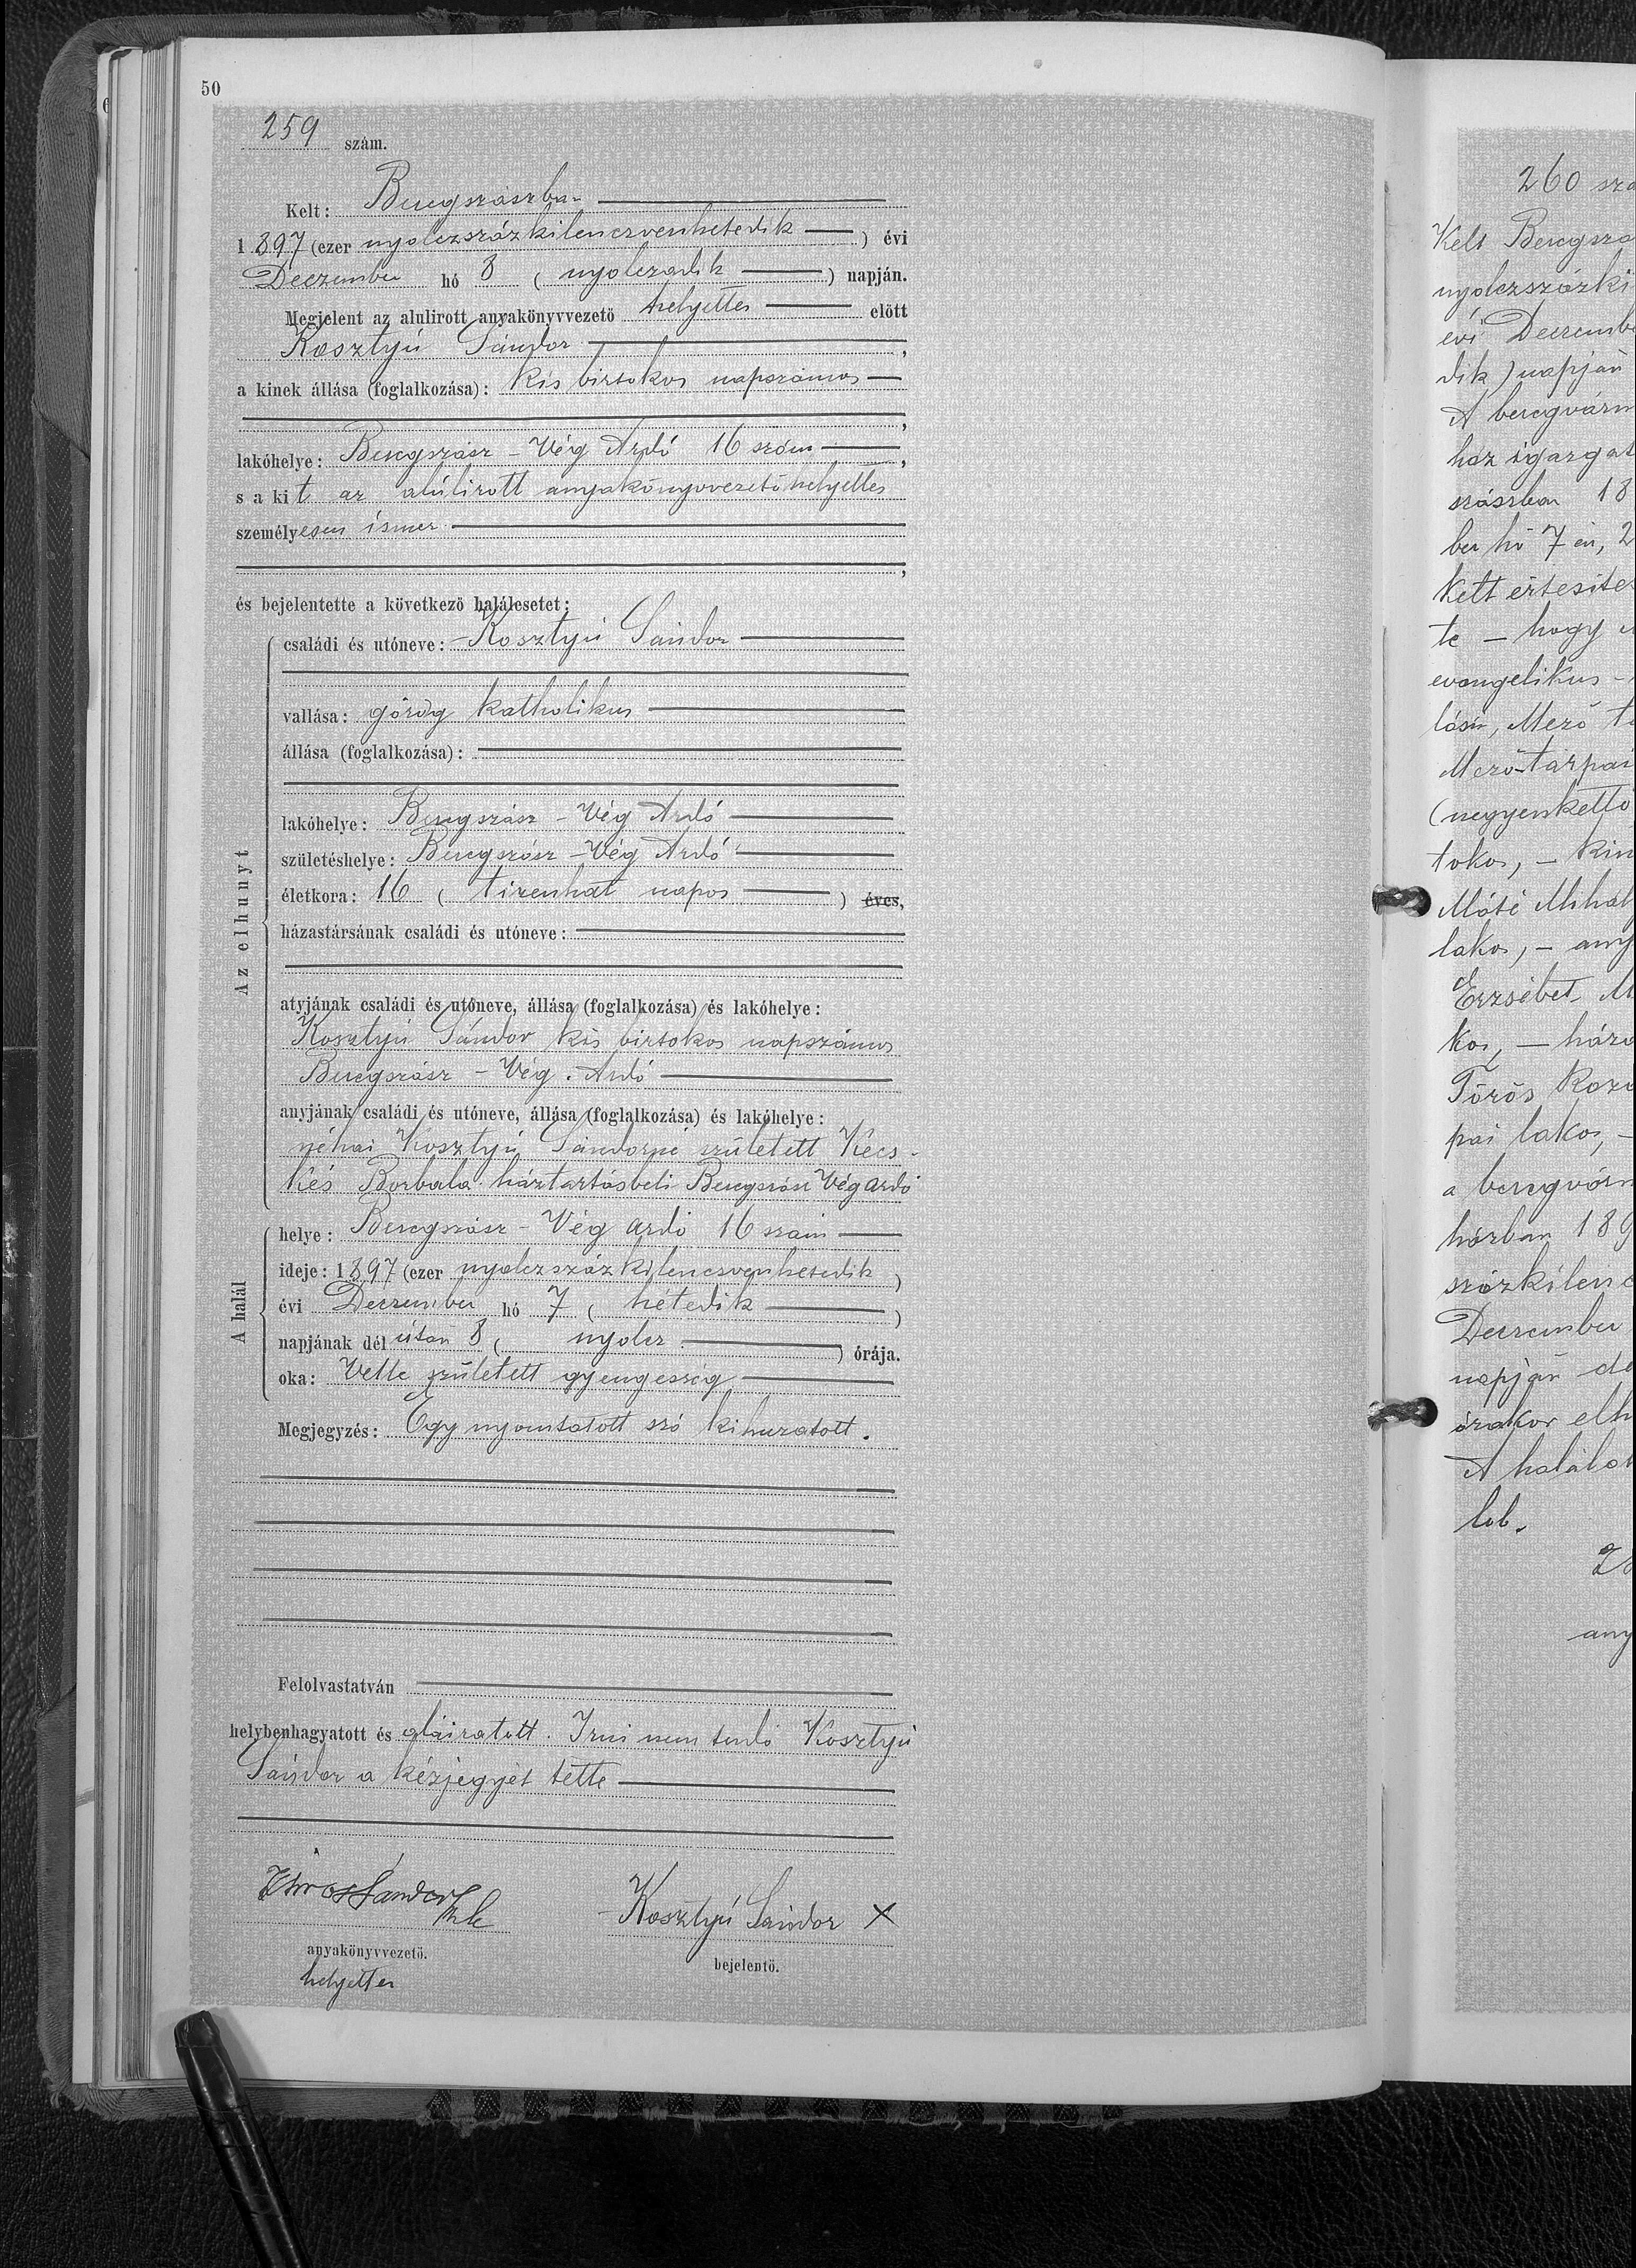 50
259 szám.
Kelt: Beregszászba-
1897 (ezer nyolczszázkilenczvenhetedik ) évi
Deczember hó 8 ( nyolczadik ) napján.
Megjelent az alulirott anyakönyvvezető helyettes előtt
Kosztyú Sándor ,
a kinek állása (foglalkozása): kis birtokos napszámos
,
lakóhelye: Beregszász - Vég Ardó 16 szám ,
s a kit az alúlirott anyakönyvvezető helyettes
személyesen ismer
,
és bejelentette a következő halálesetet:
Az elhunyt
családi és utóneve: Kosztyú Sándor
vallása: görög katholikus
állása (foglalkozása):
lakóhelye: Beregszász - Vég Ardó
születéshelye: Beregszász - Vég Ardó
életkora: 16 ( tizenhat napos ) éves,
házastársának családi és utóneve:
atyjának családi és utóneve, állása (foglalkozása) és lakóhelye:
Kosztyú Sándor kis birtokos napszámos
Beregszász - Vég . Ardó
anyjának családi és utóneve, állása (foglalkozása) és lakóhelye:
néhai Kosztyú Sándorné született Kecs-
kés Borbala háztartásbeli Beregszász Végardó
A halál
helye: Beregszász - Vég ardó 16 szám
ideje: 1897 (ezer nyolczszázkilenczvenhetedik )
évi Deczember hó 7 ( hetedik )
napjának dél után 8 ( nyolcz ) órája.
oka: Vele született gyengeség
Megjegyzés: Egy nyomtatott szó kihuzatott.
Felolvastatván
helybenhagyatott és aláiratott. Irni nem tudó Kosztyú
Sándor a kézjegyet tette
Sándor
anyakönyvvezető.
helyettes
Kosztyú Sándor X
bejelentő.
260 szá
Kelt Beregszá
nyolczszázki
évi Deczembe
dik) napján
A beregvárm
ház igazgat
szászban 18
ber hó 7 én, 2
kelt értesíte
te - hogy
evangelikus -
lású, Mező ta
Mező-tarpai
(negyenkettő
tokos, - kin
Máté Mihál
lakos, - any
Erzsébet M
kos, - háza
Törös Roza
pai lakos, -
a beregvárm
házban 189
százkilenc
Deczember
napján de
órakor elh
A halálok
lob.
any